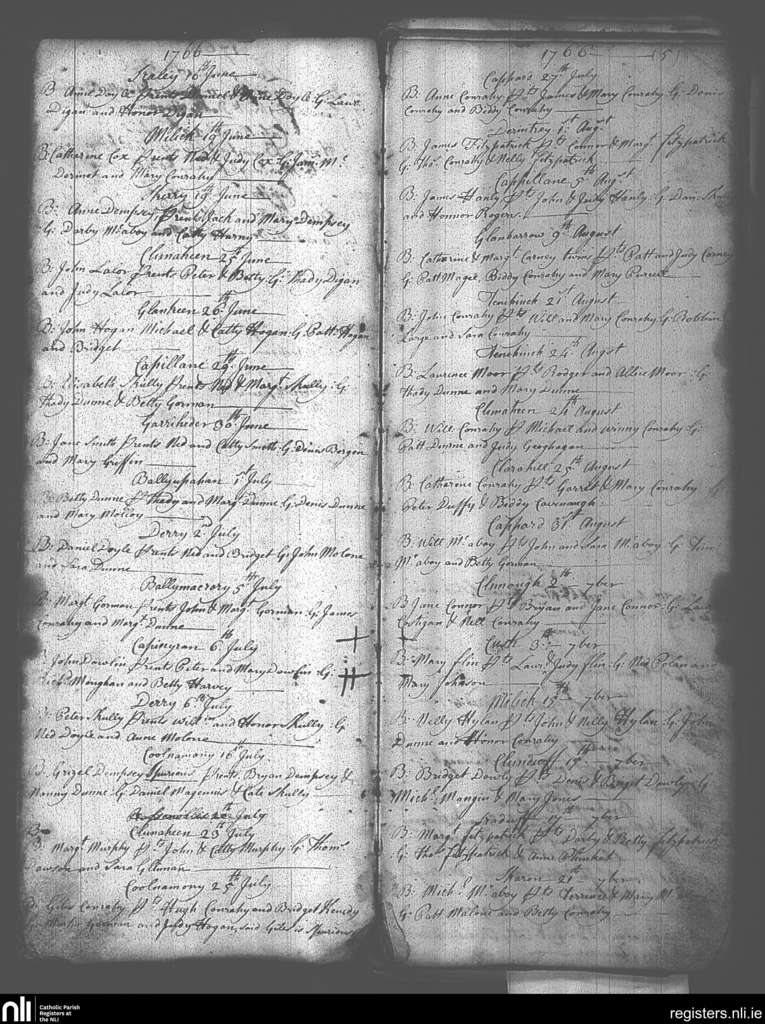 1766
16th June
B: Anne Doyle Prents & Doyle G: Law:
Digan and Honor Digan
Milick 19th June
B: Catherine Cox Prents Ned & Judy Cox G: Jams Mc
Dermot and Mary Conrahy
19th June
B: Anne Dempsey Prents Jack and Mary Dempsey
G: Darby Mcaboy and Catty
Clunaheen 25th June
B: John Lalor Prents Peter & Betty G: Thady Digan
and Judy Lalor
Glankeen 26th June
B: John Hogan Michael & Catty Hogan G: Patt Hogan
and Bridget
Capillane 29th June
B: Elizabeth Skully Prents Ned & Margt Skully: G:
Thady Dunne & Betty Gorman
Garriheder 30th June
B: Jane Smith Prents Ned and Catty Smith G: Denis Bergen
and Mary Griffin
1st July
B: Betty Dunne Pts Thady and Margt Dunne G: Denis Dunne
and Mary Molloy
Derry 2d July
B: Daniel Doyle Prents Ned and Bridget G: John Molone
and Sara Dunne
Ballymacrory 5th July
B: Margt Gorman Prents John & Margt Gorman: G: James
Conrahy and Margt Dunne
Capinyran 6th July
B: John Dowlin Prents Peter and Mary Dowlin: G:
Maughan and Betty Harvey
Derry 6th July
B: Peter Skully Prents Willm and Honor Skully: G:
Ned Doyle and Anne Molone
Coolnamony 16th July
B: Grizel Dempsey Spurious Prents Bryan Dempsey &
Nanny Dunne G: Daniel Magennis & Cate Skully
July
B
Clunaheen 23th July
B: Margt Murphy Pts John & Catty Murphy G: Thoms
and Sara
Coolnamony 25th July
B: Giles Conrahy Pts Hugh Conrahy and Bridget
Martin Gorman and Judy Hogan, said Giles is Spurious
1766 (5)
Cappard 27th July
B: Anne Conrahy Pts James & Mary Conrahy G: Denis
Conrahy and Biddy Conrahy
1st Augst
B: James Fitzpatrick Pts Connor & Margt Fitzpatrick
G: Thos Conrahy & Nelly Fitzpatrick
Cappillane 5th Augst
B: James Hanly Pts John & Judy Hanly: G: Dan:
and Honnor Rogers
Glanbarrow 9th August
B: Catherine & Margt Carney twins Pts Patt and Judy Carney
G: Patt Magee, Biddy Conrahy and Mary
Tenekinch 21st August
B: John Conrahy Pts Will and Mary Conrahy G:
Large and Sara Conrahy
Tenekinch 24th Augst
B: Laurence Moor Pts Rodger and Allice Moor: G:
Thady Dunne and Mary Dunne
Clunaheen 24th August
B: Will Conrahy Pts Michael and Winny Conrahy G:
Patt Dunne and Judy Geoghagan
Clarahill 25th August
B: Catharine Conrahy Pts Garret & Mary Conrahy G
Peter Duffy & Biddy Cavenaugh
Cappard 31st August
B: Will Mcaboy Pts John and Sara Mcaboy G: Tim:
Mcaboy and Betty Gorman
Clunaugh 2th 7ber
B: Jane Connor Pts Bryan and Jane Connor: G: Law
Costigan & Nell Conrahy
3th 7ber
B: Mary Flin Pts Laur: & Judy Flin: G: Ned Polan and
Mary Johnson
Milick 13th 7ber
B: Nelly Hylan Pts John & Nelly Hylan G: John
Dunne and Honor Conrahy
7ber
B: Bridget Dowly Pts Denis & Bridget Dowly G:
Michl: Mangin & Mary Jones
7ber
B: Margt Fitzpatrick Pts Darby & Betty Fitzpatrick
G: Thos Fitzpatrick & Anne
21st 7ber
B: Michl Mcaboy Pts Terrence & Mary
G: Patt Malone and Betty Conrahy
nli
Catholic Parish
Registers at
the NLI
registers.nli.ie